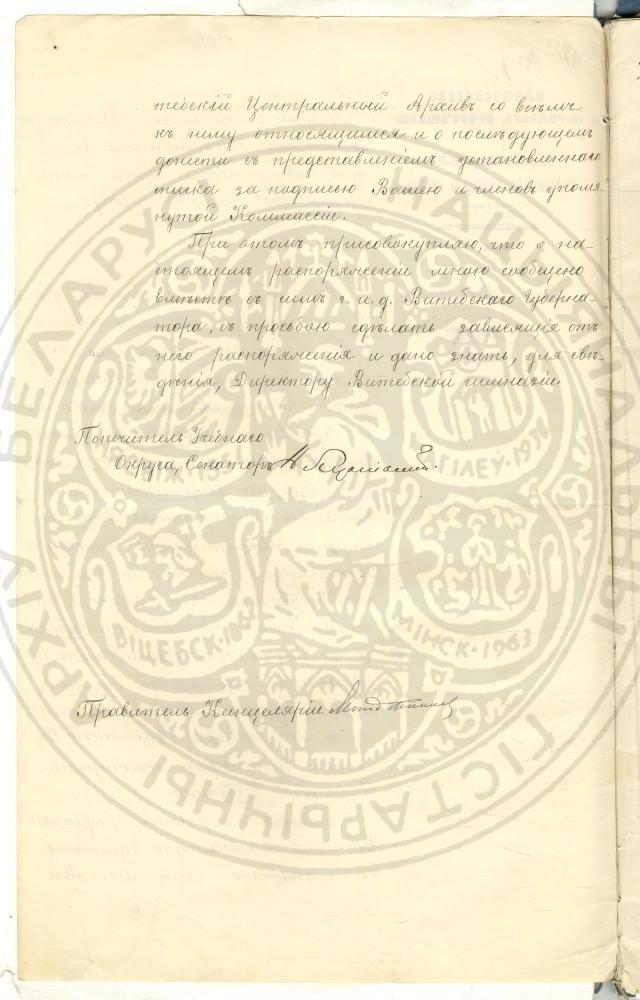 тебскій Центральный Архивъ со всѣмъ
къ нему относящимся и о послѣдующемъ
донести съ представленіемъ установленнаго
списка за подписью Вашею и членовъ упомя-
нутой Коммисіи.
При этомъ присовокупляю, что о на-
стоящемъ распоряженіи мною сообщено
вмѣстѣ съ симъ г. и. д. Витебскаго Губерна-
тора, съ просьбою сдѣлать зависящія отъ
него распоряженія и дано знать, для свѣ-
дѣнія, Директору Витебской гимназіи.
Попечитель Учебнаго
Округа, Сенаторъ
Правитель Канцеляріи
БЕЛАРУСІ
НАЦ
ГІСТАРЫЧНЫ
АРХІ
ГІЛЕЎ·19
ВІЦЕБСК·1862
МІНСК·1963